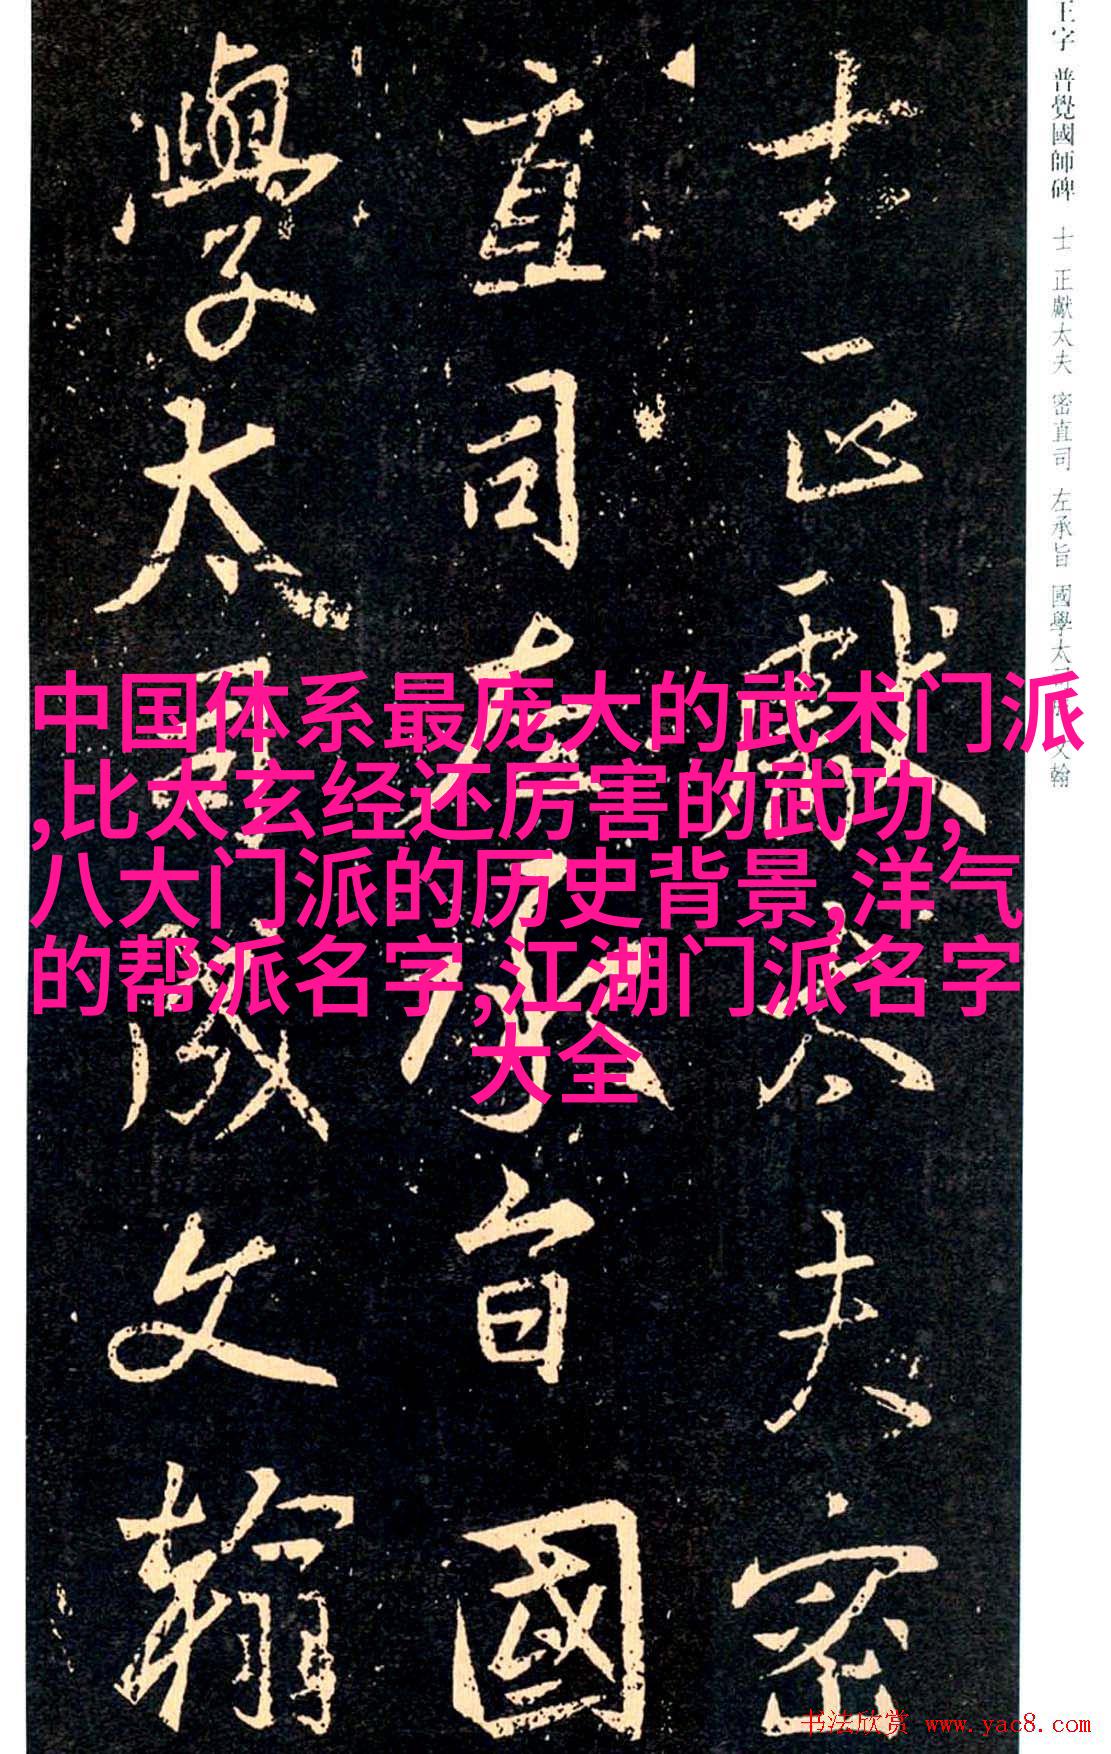 王字 普覺國師碑 士 正獻太夫 密直司 左承旨 國學太司成文翰
士正獻太夫密
直司左承旨國
學太司成文翰
中国体系最庞大的武术门派
,比太玄经还厉害的武功,
八大门派的历史背景,洋气
的帮派名字,江湖门派名字
大全
书法欣赏 www.yac8.com